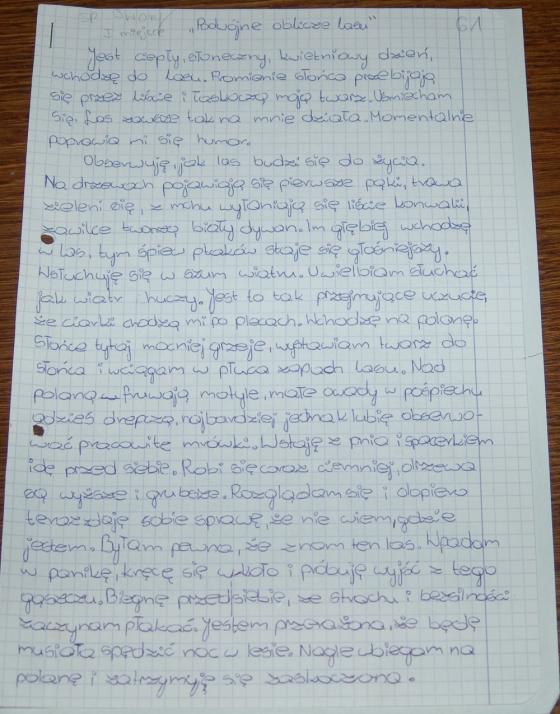 SP Dwory
I miejsce
„Podwójne oblicze lasu”
61
Jest ciepły, słoneczny, kwietniowy dzień,
wchodzę do lasu. Promienie słońca przebijają
się przez liście i łaskoczą moją twarz. Uśmiecham
się. Las zawsze tak na mnie działa. Momentalnie
poprawia mi się humor.
Obserwuję, jak las budzi się do życia.
Na drzewach pojawiają się pierwsze pąki, trawa
zieleni się, z mchu wyłaniają się liście konwalii,
zawilce tworzą biały dywan. Im głębiej wchodzę
w las, tym śpiew ptaków staje się głośniejszy.
Wsłuchuję się w szum wiatru. Uwielbiam słuchać
jak wiatr huczy. Jest to tak przejmujące uczucie,
że ciarki chodzą mi po plecach. Wchodzę na polanę.
Słońce tytaj mocniej grzeje, wystawiam twarz do
słońca i wciągam w płuca zapach lasu. Nad
polaną fruwają motyle, małe owady w pośpiechu
gdzieś drepczą, najbardziej jednak lubię obserwo-
wać pracowite mrówki. Wstaję z pnia i spacerkiem
idę przed siebie. Robi się coraz ciemniej, drzewa
są wyższe i grubsze. Rozglądam się i dopiero
teraz zdaję sobie sprawę, że nie wiem, gdzie
jestem. Byłam pewna, że znam ten las. Wpadam
w panikę, kręcę się wkoło i próbuję wyjść z tego
gąszczu. Biegnę przed siebie, ze strachu i bezsilności
zaczynam płakać. Jestem przerażona, że będę
musiała spędzić noc w lesie. Nagle wbiegam na
polanę i zatrzymuję się zaskoczona.